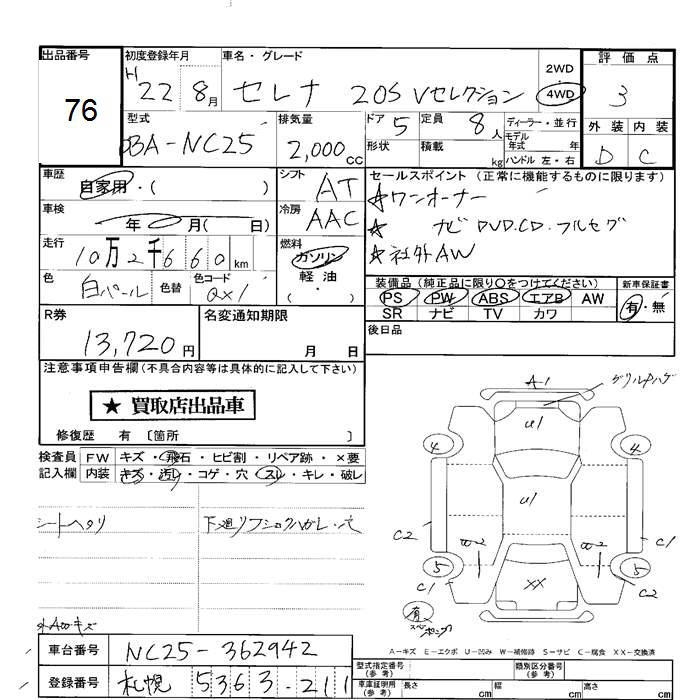 出品番号 初度登録年月 車名・グレード 評価点
76 H 22 8月 セレナ 20S Vセレクション 2WD 4WD 3
型式 排気量 ドア 5 定員 8人 ディーラー・並行 外装 内装
DBA-NC25 2,000CC 形状 積載 kg モデル年式 年 ハンドル 左・右 D C
車歴 シフト セールスポイント (正常に機能するものに限ります)
自家用・( ) AT ★ワンオーナー
車検 年 月( 日) 冷房 AAC ★ ナビ DVD.CD.フルセグ
走行 10万2千660km 燃料 ガソリン・軽油 ( ) ★社外AW
色 白パール 色替 色コード QX1
装備品 (純正品に限り○をつけてください) 新車保証書
PS PW ABS エアB AW 有・無
SR ナビ TV カワ
R券 名変通知期限 後日品
13,720円 月 日
注意事項申告欄(不具合内容等は具体的に記入して下さい)
★ 買取店出品車
修復歴 有 〔箇所 〕
検査員 FW キズ・飛石・ヒビ割・リペア跡・×要
記入欄 内装 キズ・汚レ・コゲ・穴・スレ・キレ・破レ
シートヘタリ 下廻リフショクハガレ・穴
外AWキズ
A1 グリルPハゲ
U1
4 4
U1
C2 C1
B2 B2
5 5
C1 XX C2
有
A-キズ E-エクボ U-凹み W-補修跡 S-サビ C-腐食 XX-交換済
車台番号 NC25-362942 型式指定番号 (参考) 類別区分番号 (参考)
登録番号 札幌 5363.211 車庫証明用 (参考) 長さ cm 幅 cm 高さ cm